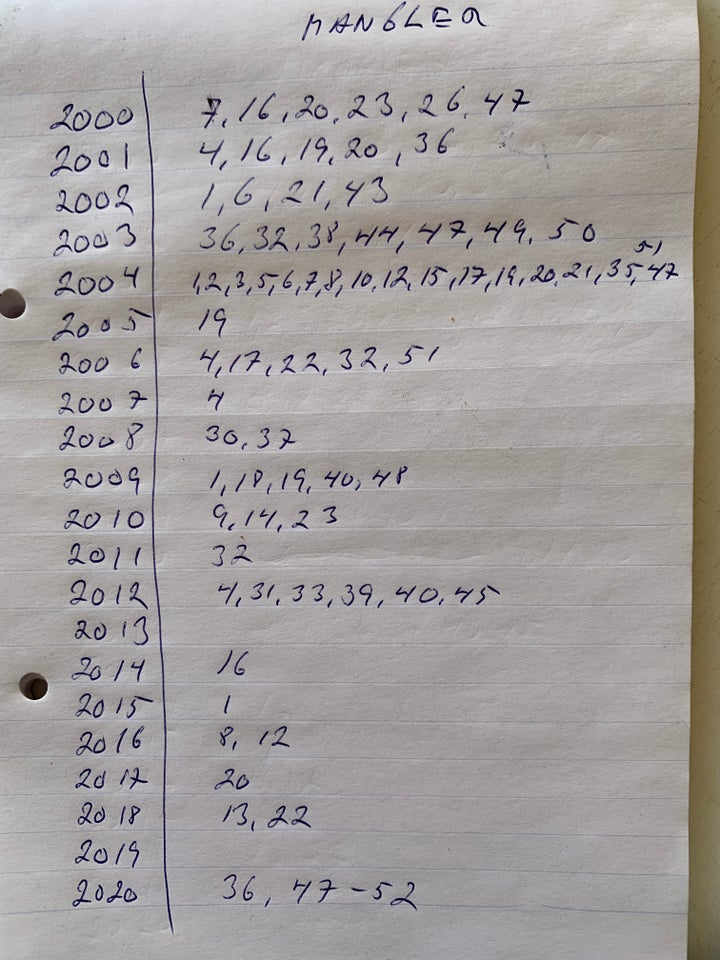 MANGLER
2000 7, 16, 20, 23, 26, 47
2001 4, 16, 19, 20, 36
2002 1, 6, 21, 43
2003 36, 32, 38, 44, 47, 49, 50
2004 1, 2, 3, 5, 6, 7, 8, 10, 12, 15, 17, 19, 20, 21, 35, 47, 51
2005 19
2006 4, 17, 22, 32, 51
2007 4
2008 30, 37
2009 1, 18, 19, 40, 48
2010 9, 14, 23
2011 32
2012 4, 31, 33, 39, 40, 45
2013
2014 16
2015 1
2016 8, 12
2017 20
2018 13, 22
2019
2020 36, 47-52